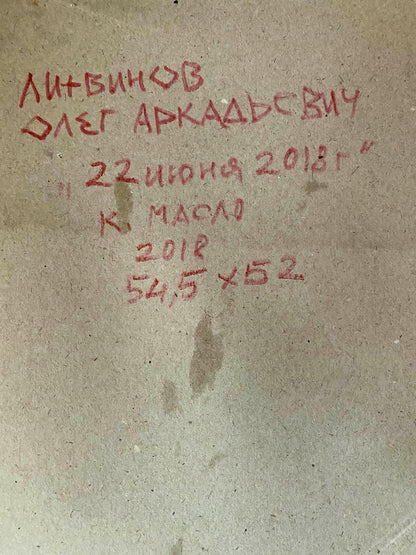 ЛИТВИНОВ
ОЛЕГ АРКАДЬЕВИЧ
„22 июня 2018 г"
К. МАСЛО
2018
54,5 х 52